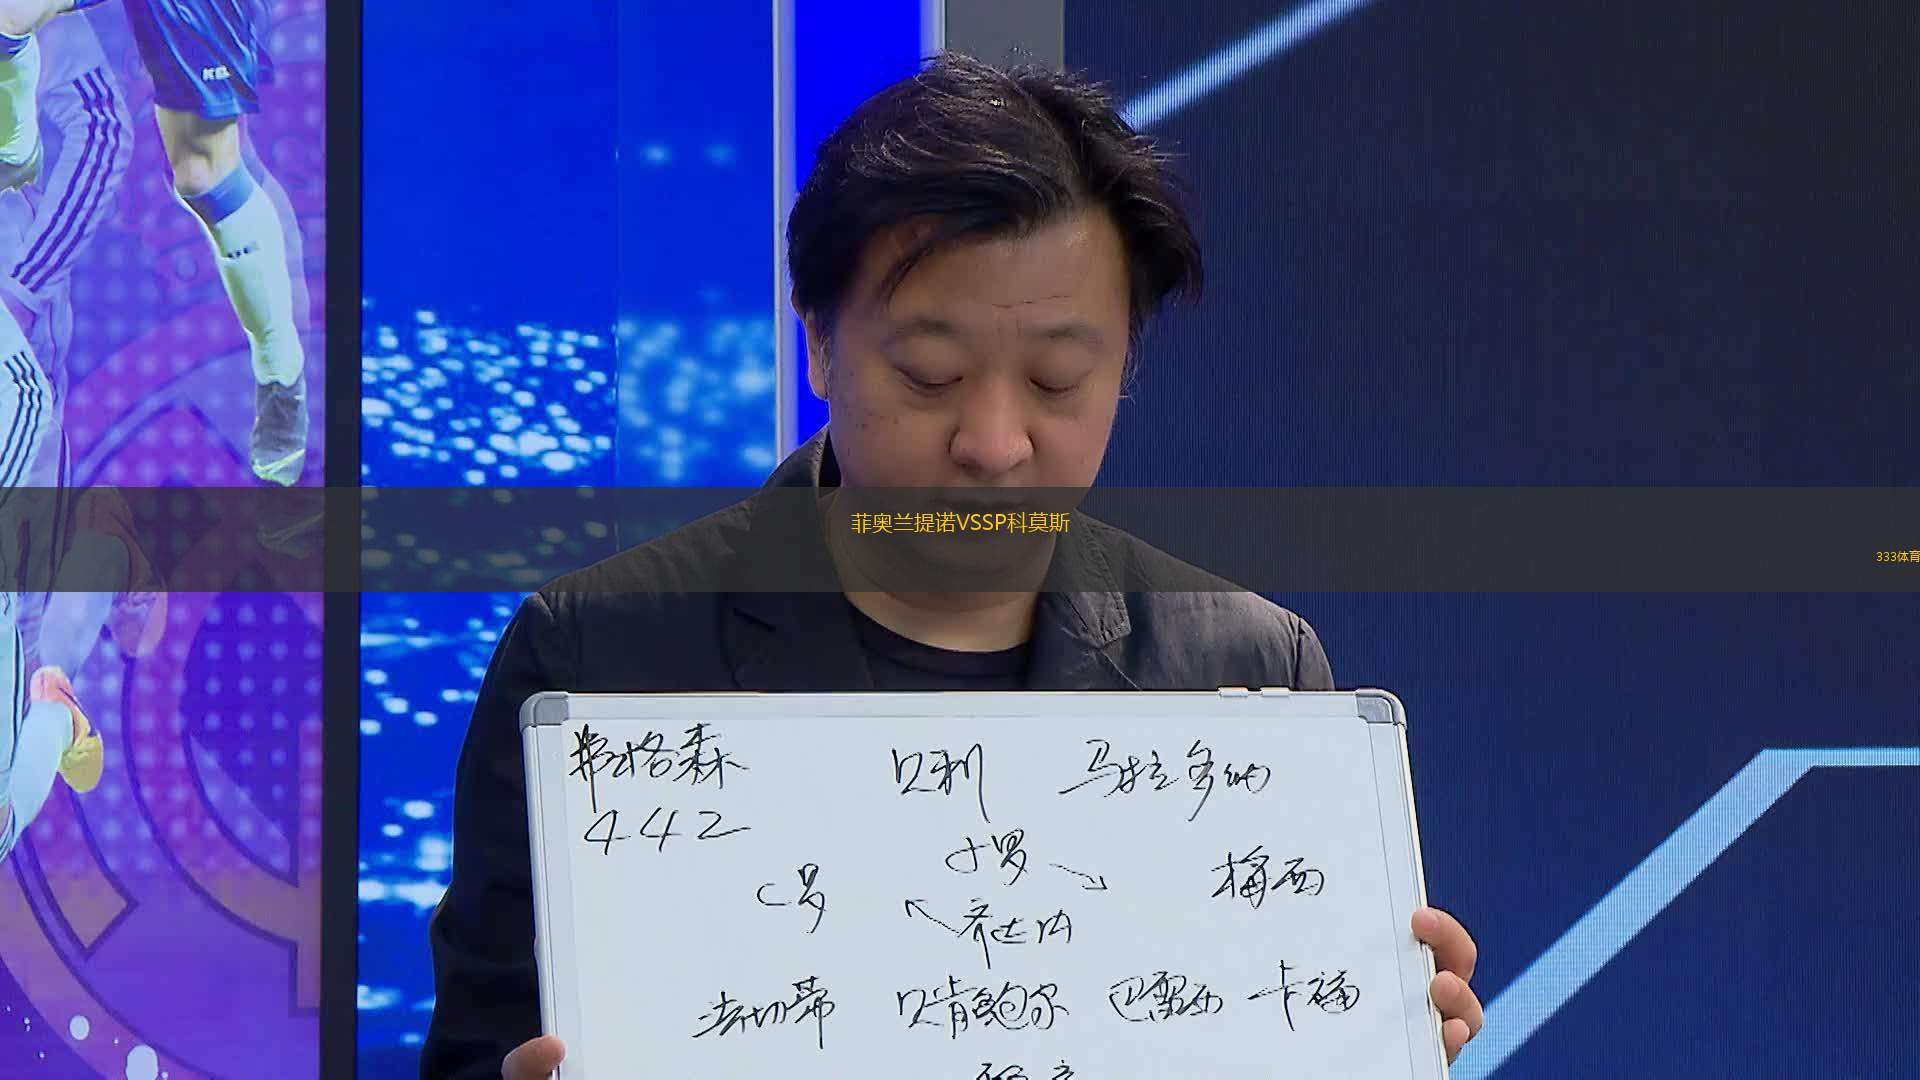 KEL
菲奥兰提诺VSSP科莫斯
333体育
弗格森 贝利 马拉多纳
442
小罗
C罗 梅西
齐达内
法切蒂 贝肯鲍尔 巴雷西 卡福